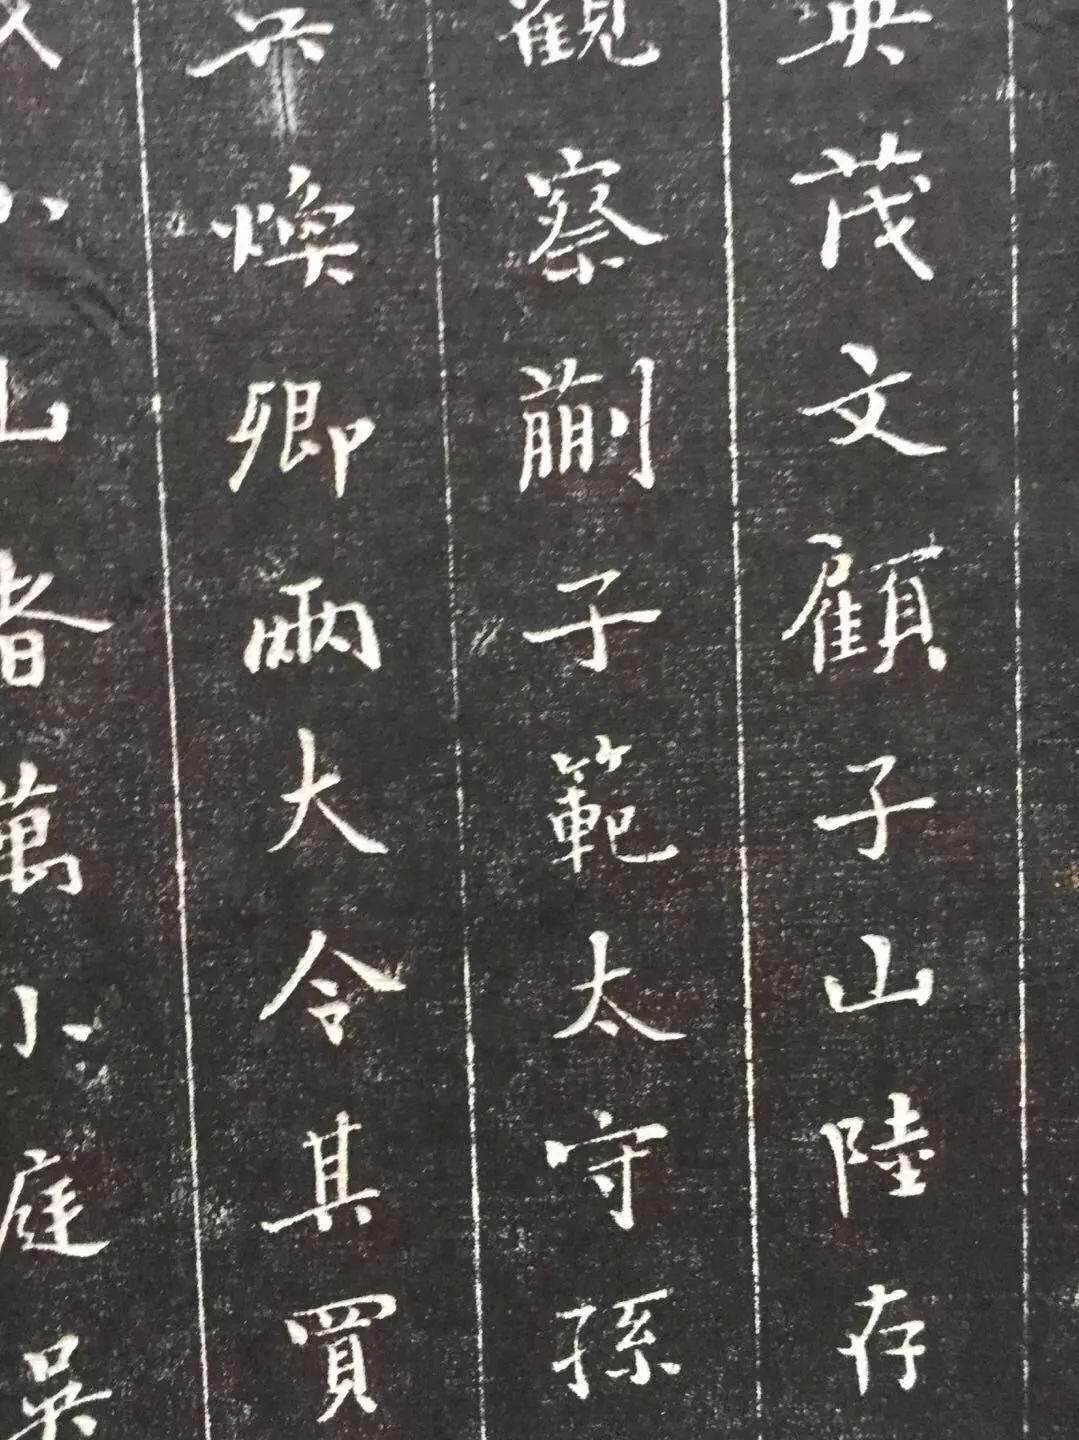 茂文顧子山陸存
觀察蒯子範太守孫
煥卿兩大令其買
山者萬小庭吳